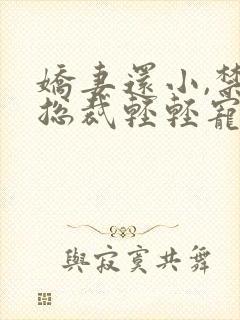 嬌妻還小,禁
總裁輕輕寵
與寂寞共舞